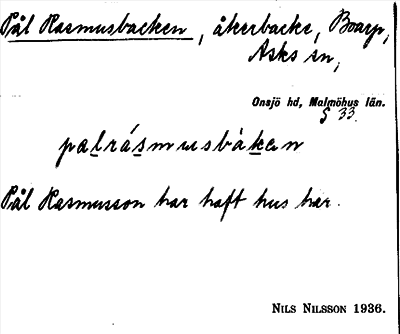 Pål Rasmusbacken, åkerbacke, Boarp,
Asks sn,
Onsjö hd, Malmöhus län.
§ 33.
palrásmusbàken
Pål Rasmusson har haft hus här.
NILS NILSSON 1936.